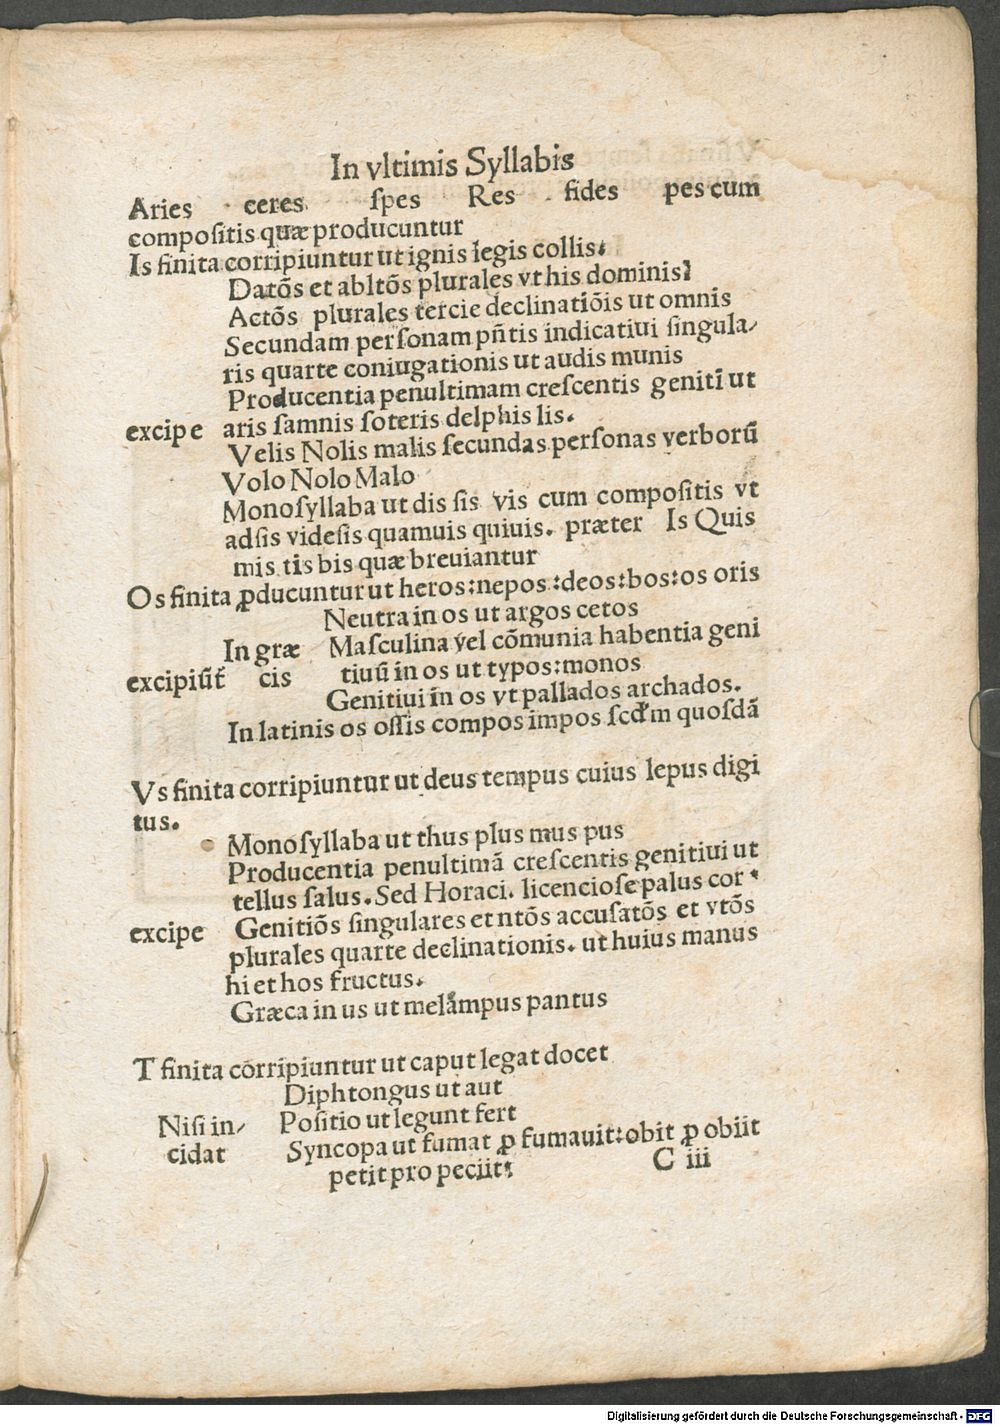 In vltimis Syllabis
Aries ceres ſpes Res fides pes cum
compoſitis quæ producuntur
Is finita corripiuntur ut ignis legis collis.
Datōs et abltōs plurales vt his dominis:
Actōs plurales tercie declinatiōis ut omnis
Secundam perſonam pñtis indicatiui ſingula/
ris quarte coniugationis ut audis munis
Producentia penultimam creſcentis genitī ut
excipe aris ſamnis ſoteris delphis lis.
Velis Nolis malis ſecundas perſonas verborū
Volo Nolo Malo
Monoſyllaba ut dis ſis vis cum compoſitis vt
adſis videſis quamuis quiuis. præter Is Quis
mis tis bis quæ breuiantur
Os finita ꝓducuntur ut heros:nepos:deos:bos:os oris
Neutra in os ut argos cetos
In græ Maſculina vel cōmunia habentia geni
excipiūt cis tiuū in os ut typos:monos
Genitiui in os vt pallados archados.
In latinis os oſſis compos impos ſcđm quoſdā
Vs finita corripiuntur ut deus tempus cuius lepus digi
tus.
Monoſyllaba ut thus plus mus pus
Producentia penultimā creſcentis genitiui ut
tellus ſalus. Sed Horaci. licencioſe palus cor.
excipe Genitiōs ſingulares et ntōs accuſatōs et vtōs
plurales quarte declinationis. ut huius manus
hi et hos fructus.
Græca in us ut melāmpus pantus
T finita corripiuntur ut caput legat docet
Diphtongus ut aut
Niſi in/ Poſitio ut legunt fert
cidat Syncopa ut fumat ꝓ fumauit:obit ꝓ obiit
petit pro peciit: C iii
Digitalisierung gefördert durch die Deutsche Forschungsgemeinschaft - DFG